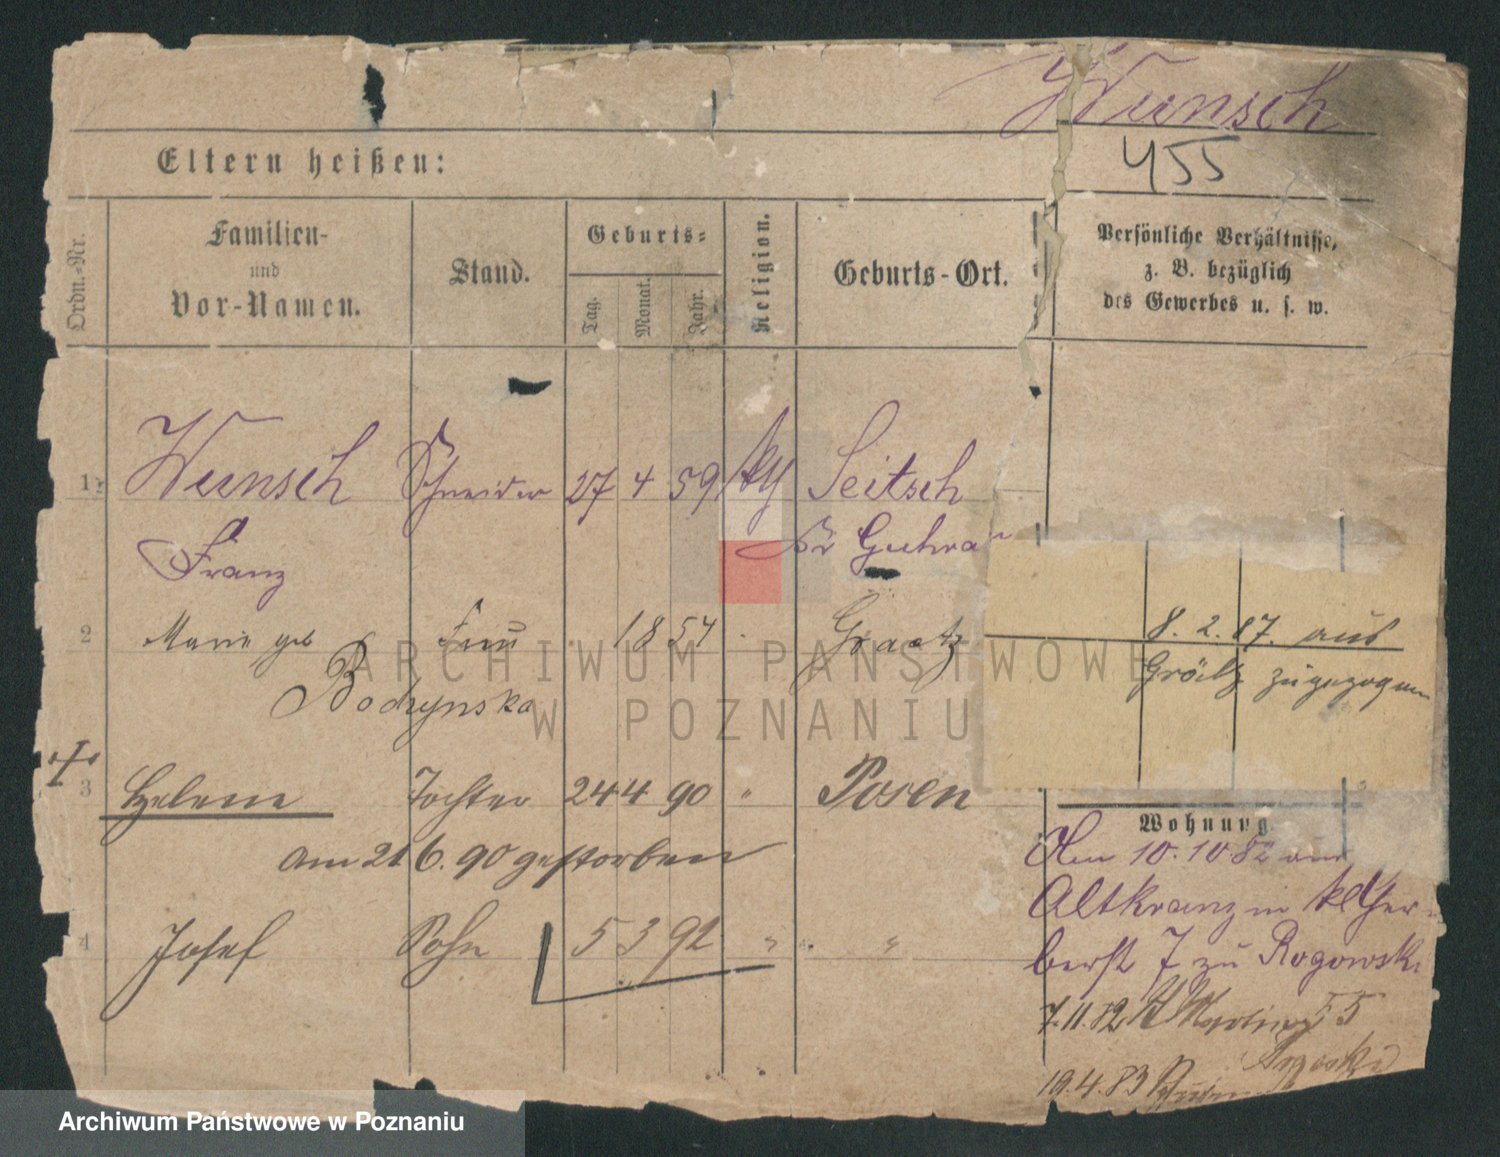 Wunsch
Eltern heißen:
455
Ordn.-Nr.
Familien-
und
Vor-Namen.
Stand.
Geburts-
Tag.
Monat.
Jahr.
Religion.
Geburts-Ort.
Persönliche Verhältnisse,
z. B. bezüglich
des Gewerbes u. s. w.
1. Wunsch Schneider 27 4 59 Seitsch
Franz Kr Guhrau
2 Marie geb Frau 1854 Graetz
Bodzynska
8. 2. 87. aus
Grätz zugezogen
3 Helene Tochter 24 4 90 " Posen
am 21.6.90 gestorben
4 Josef Sohn 5 3 92 " "
Wohnung
Am 10.10.82 aus
Altkranz in kl Ger-
berstr 7 zu Rogowski
7.11.82 55
19.4.83
ARCHIWUM PAŃSTWOWE
W POZNANIU
Archiwum Państwowe w Poznaniu